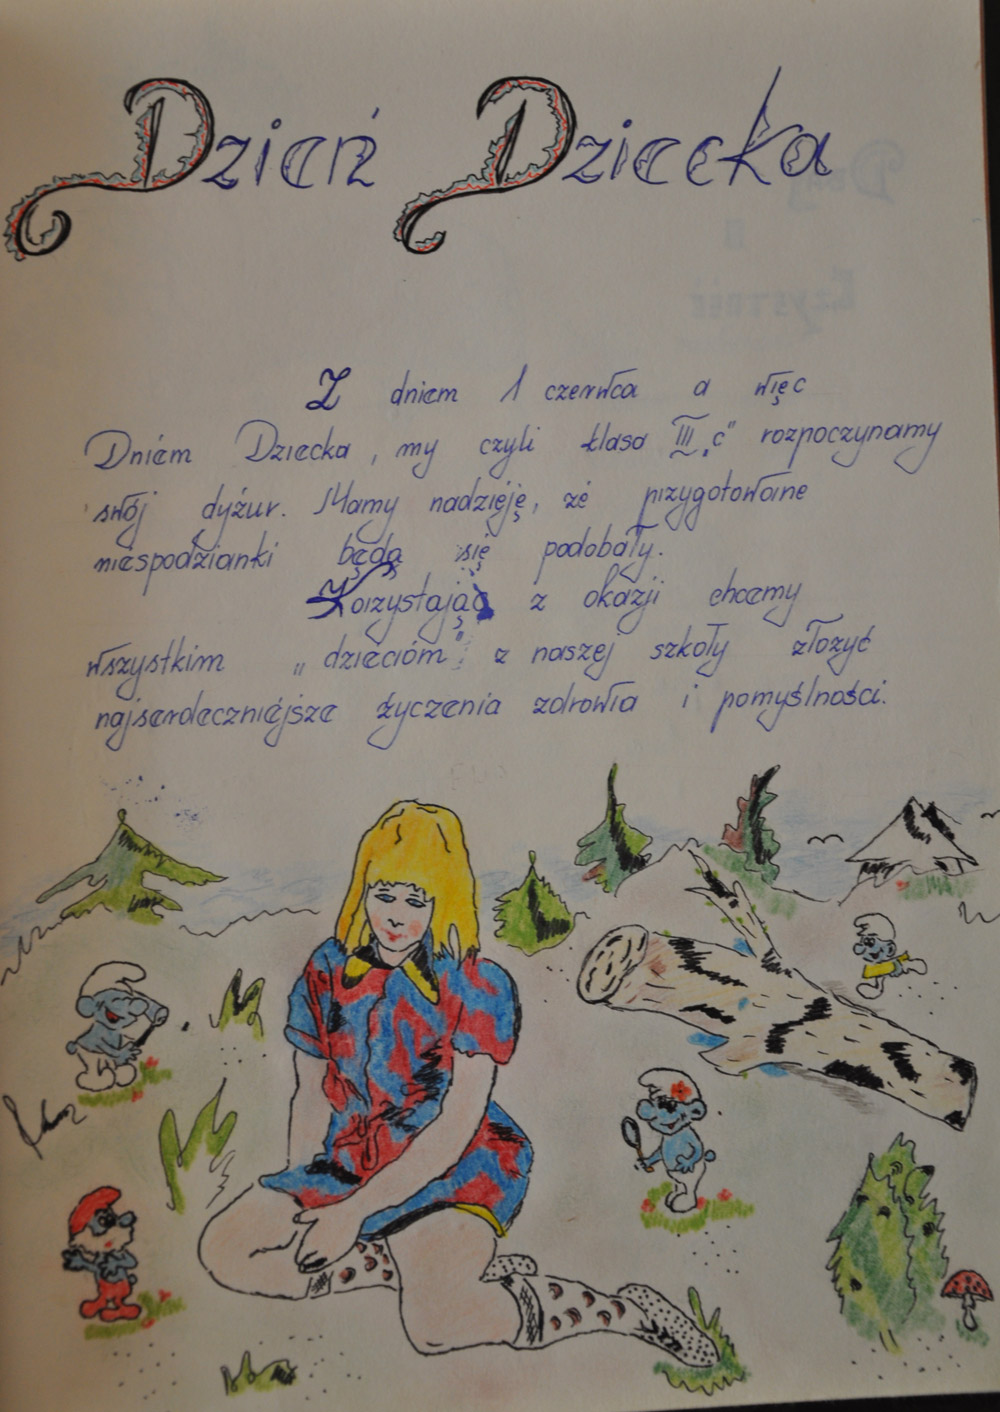 Dzień Dziecka
Z dniem 1 czerwca a więc
Dniem Dziecka, my czyli klasa III „c" rozpoczynamy
swój dyżur. Mamy nadzieję, że przygotowane
niespodzianki będą się podobały.
Korzystając z okazji chcemy
wszystkim „dzieciom" z naszej szkoły złożyć
najserdeczniejsze życzenia zdrowia i pomyślności.